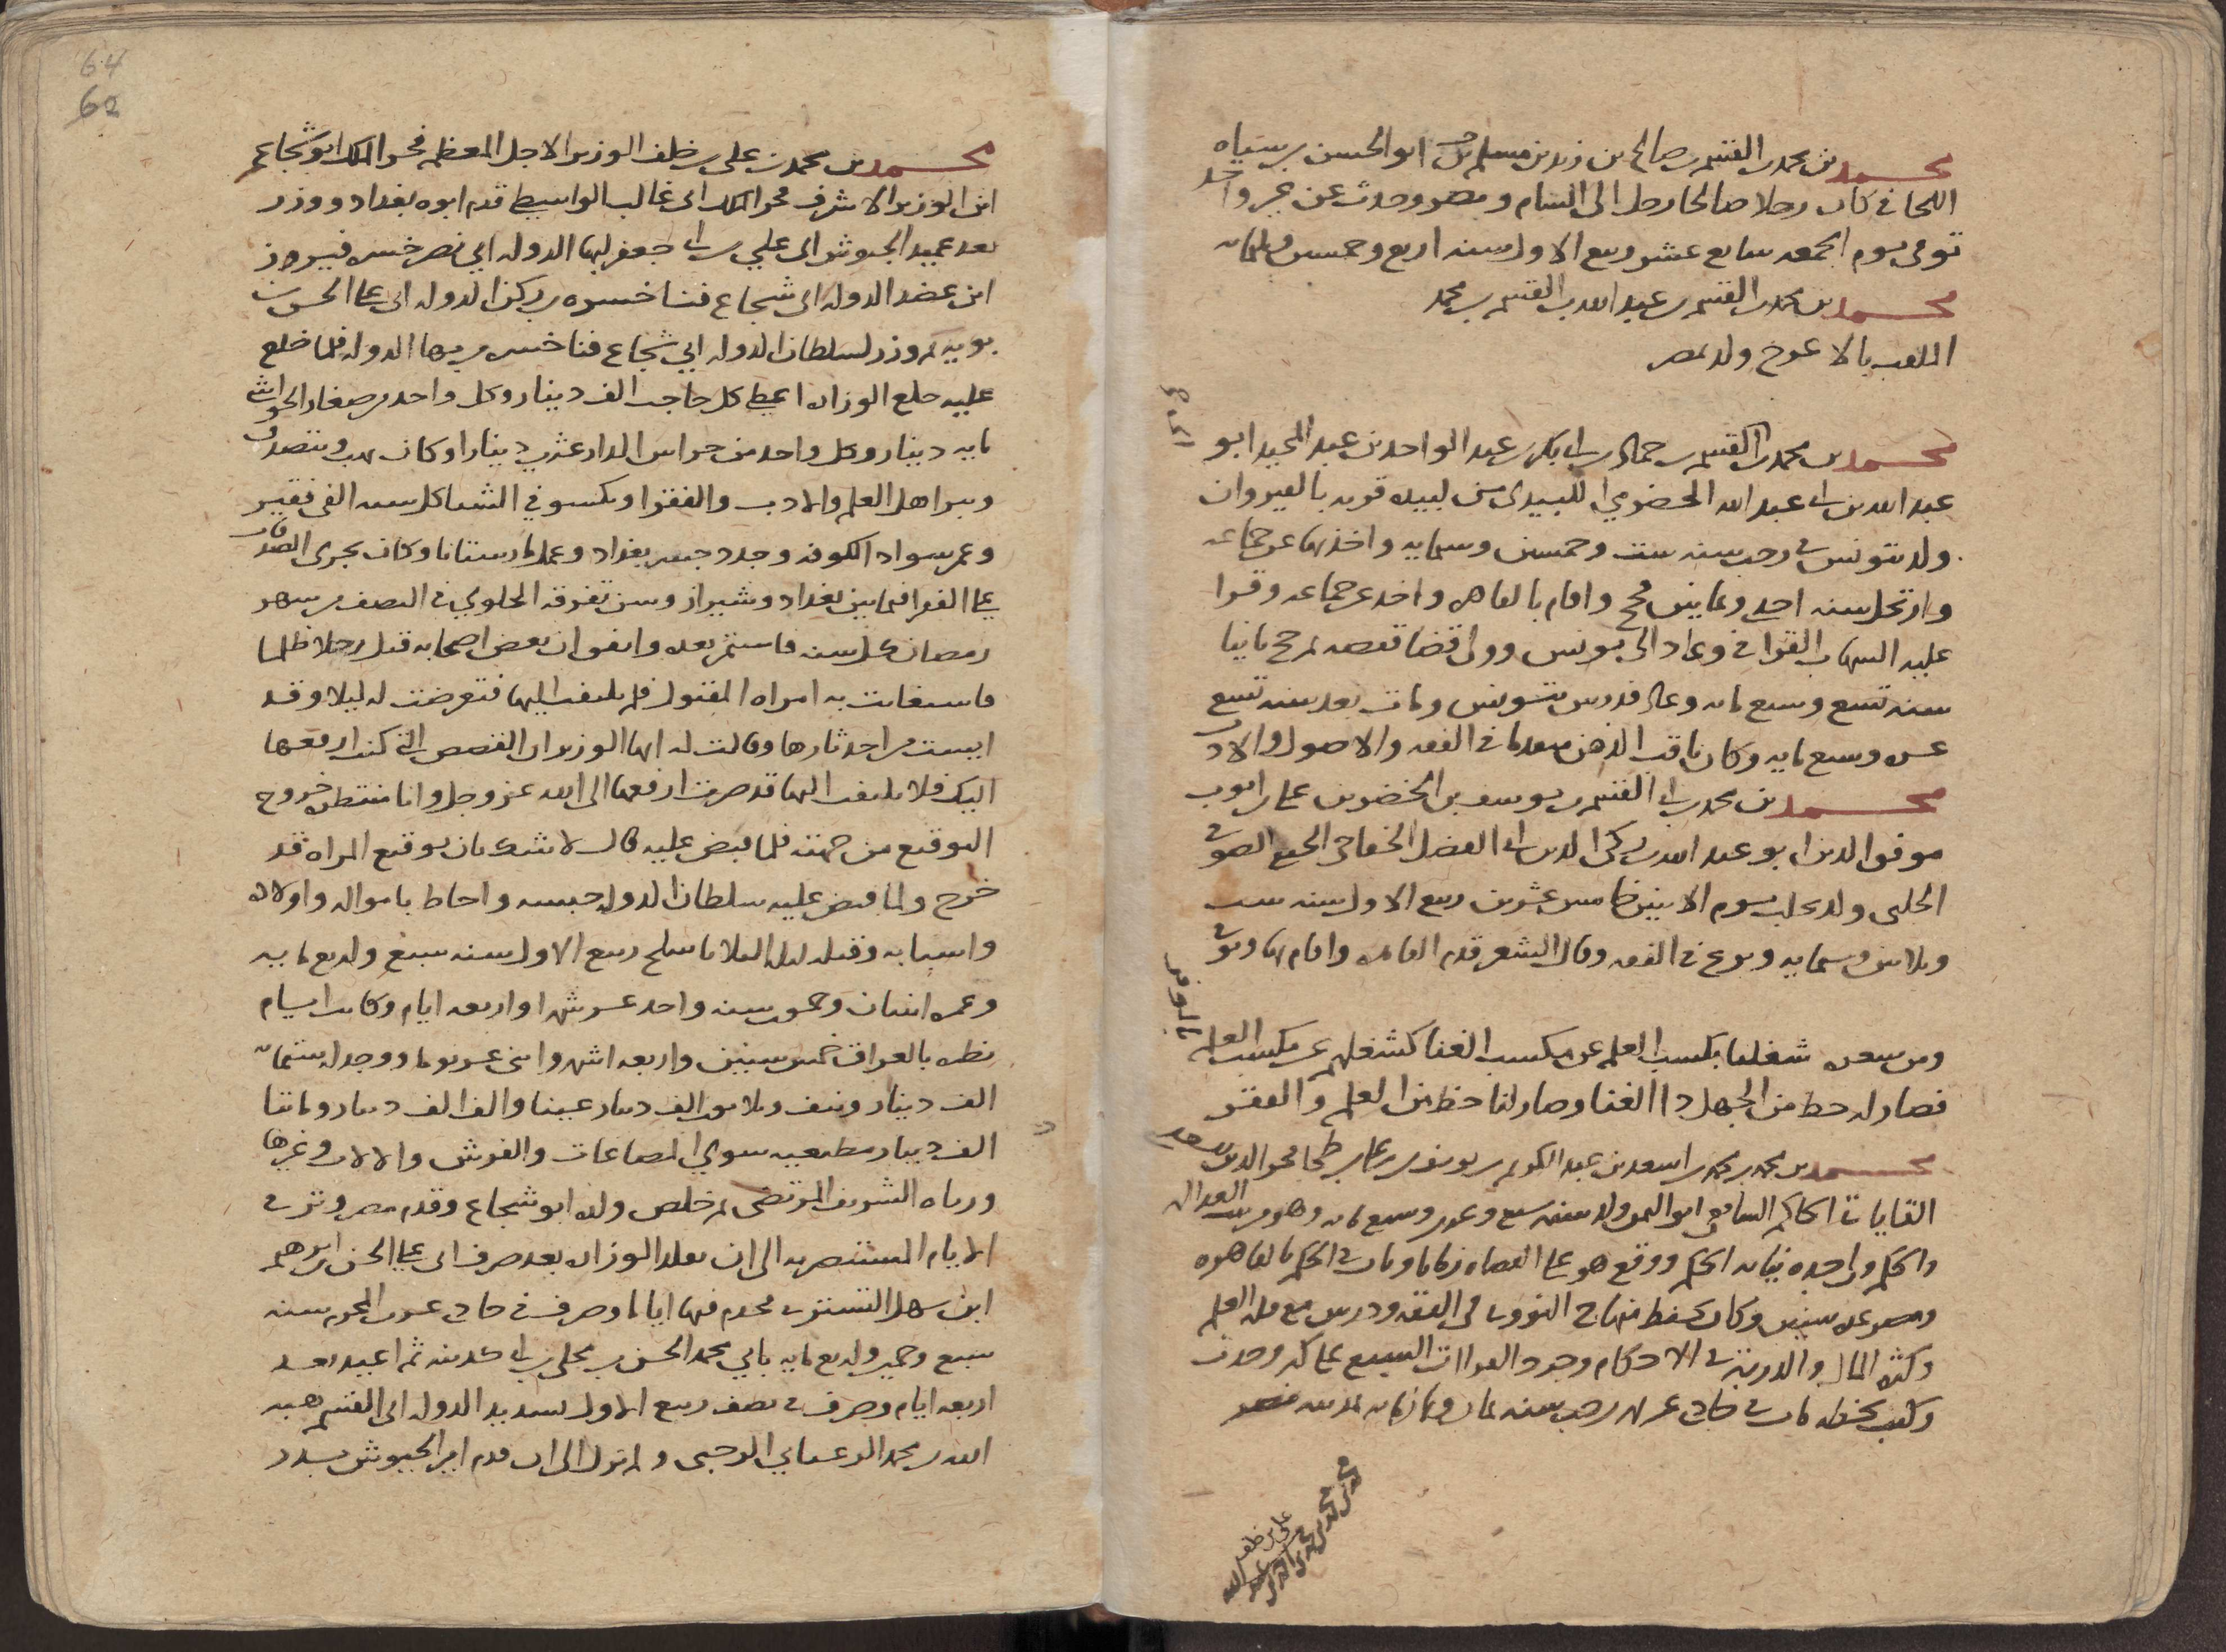 محمد بن محمد بن القسم بن صالح بن زيد بن مسلم ابو الحسن بن سياه
اللحاني كان رجلا صالحا رحل الى الشام و مصر وحدث عن غير واحد
توفى يوم الجمعه سابع عشر ربيع الاول سنه اربع وخمسين وثلثمائه
محمد بن محمد بن القسم بن عبد الله بن القسم بن محمد
الملقب بالاعوج ولد بمصر
محمد بن محمد بن القسم بن حماد بن ابى بكر بن عبد الواحد بن عبد المجيد ابو
عبد الله بن ابى عبد الله الحضرمي اللبيدى من لبيده قريه بالقيروان
ولد بتونس فى رجب سنه ست وخمسين وستمايه واخذ بها عن جماعه
وارتحل سنه احدى وثمانين فحج واقام بالقاهره واخذ عن جماعه وقرا
عليه الشهاب القرافي وعاد الى تونس وولى قضا قفصه ثم حج ثانيا
سنه تسع وسبع مايه وعاد فدرس بتونس ومات بعد سنه تسع
عشره وسبع مايه وكان ثاقب الذهن مقدما في الفقه والاصول والادب
محمد بن محمد بن ابى القسم بن يوسف بن الخضر بن على بن ايوب
موفق الدين ابو عبد الله بن زكى الدين ابى الفضل الخفاجى الحنفى الصوفى
الحلبى ولد بحلب يوم الاثنين خامس عشرين ربيع الاول سنه ست
وثلاثين وستمايه وبرع في الفقه وقال الشعر قدم القاهره واقام بها وتوفى
بالوفى
ومن شعره شغلنا بكسب العلم عن مكسب الغنا كشغلهم عن مكسب العلم
فصار لهم حظ من الجهل والغنا وصار لنا حظ من العلم والفقر
محمد بن محمد بن محمد بن اسعد بن عبد الكريم بن يوسف بن على بن طحا فخر الدين بن سعيد
القاياتى الحاكم الشافعى ابو اليمن ولد سنه سبع وعشرين وسبع مايه وهو من بيت العداله
والحكم ولى جده نيابه الحكم ووقع هو على القضاه زمانا وناب فى الحكم بالقاهره
ومصر عده سنين وكان يحفظ منهاج النووى في الفقه ودرس مع قله العلم
وكثره المال والدربه فى الاحكام وجود القراات السبع على وحدث
وكتب بخطه مات فى حادى عشر رجب سنه ثمان وثمانمايه بمدينه مصر
محمد بن محمد بن محمد بن
على بن ظفر
محمد بن محمد بن على بن خلف الوزير الاجل المعظم فخر الملك ابو شجاع
ابن الوزير الاشرف فخر الملك ابى غالب الواسطى قدم ابوه بغداد ووزر
بعد عميد الجيوش ابى على بن ابى جعفر لبها الدوله ابي نصر خسره فيروز
ابن عضد الدوله ابى شجاع فنا خسره بن ركن الدوله ابى على الحسن بن
بويه ثم وزر لسلطان الدوله ابي شجاع فنا خسره بن بها الدوله فلما خلع
عليه خلع الوزاره اعطى كل حاجب الف دينار وكل واحد من صغار الحواشى
مايه دينار وكل واحد من حراس الدار عشرين دينارا وكان يهب ويتصدق
ويبر اهل العلم والادب والفقرا ويكسو في الشتا كل سنه الفى فقير
وعمر سواد الكوفه وجدد جسر بغداد وعمل مارستانا وكان يجرى الصدقات
على الفقرا فيما بين بغداد وشيراز وسن تفرقه الحلوي فى النصف من شهر
رمضان كل سنه فاستمر بعده واتفق ان بعض اصحابه قتل رجلا ظلما
فاستغاثت به امراه المقتول فلم يلتفت اليها فتعرضت له ليلا وقد
ايست من اخذ ثارها وقالت له ايها الوزير ان القصص التى كنت ارفعها
اليك فلا تلتفت اليها قد صرت ارفعها الى الله عز وجل وانا منتظره خروج
التوقيع من جهته فلما قبض عليه قال لاشك بان توقيع المراه قد
خرج ولما قبض عليه سلطان الدوله حبسه واحاط بامواله واولاده
واسبابه وقتله ليله الثلاثا سلخ ربيع الاول سنه سبع واربع مايه
وعمره اثنان وخمسون سنه واحد عشر شهرا واربعه ايام وكانت ايام
نظره بالعراق خمس سنين واربعه اشهر واثنى عشر يوما ووجد له ستمائه
الف دينار ونيف وثلاثون الف دينار عينا والف الف دينار ومائتا
الف دينار مطيعيه سوي المصاغات والفرش والالات وغيرها
ورثاه الشريف المرتضى ثم خلص ولده ابو شجاع وقدم مصر وترك
الايام المستنصريه الى ان تقلد الوزاره بعد صرف ابى على الحسن بن ابرهيم
ابن سهل التسترى فخدم فيها اياما وصرف في حادى عشر المحرم سنه
سبع وخمسين واربع مايه بابي محمد الحسن بن مجلى بن ابى كدينه ثم اعيد بعد
اربعه ايام وصرف فى نصف ربيع الاول بسديد الدوله ابى القسم هبه
الله بن محمد الرعبانى الرحبى ولم يزل الى ان قدم امير الجيوش بدر
64
62